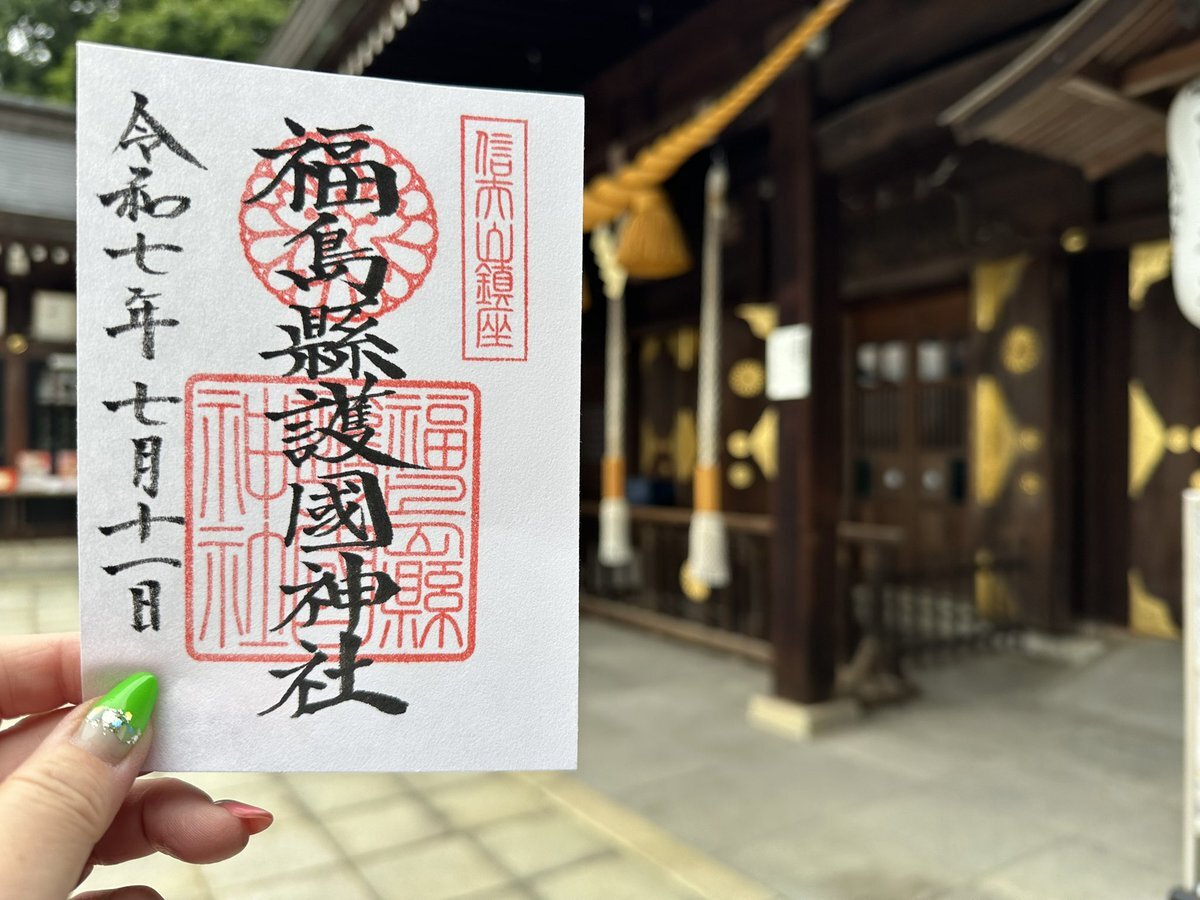 信夫山鎮座
福島縣護國神社
福島縣
護國
神社
令和七年 七月十一日